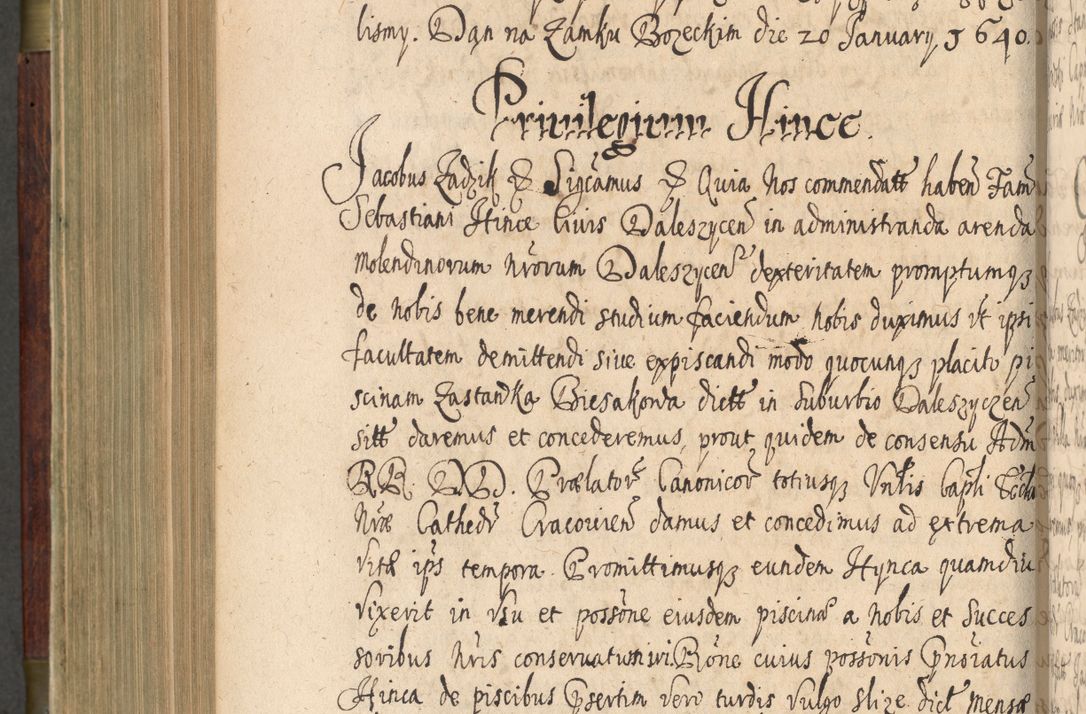 lismy. Dan na Zamku Bozeckim die 20 January 1640.
Priuilegium Hince.
Jacobus Zadzik &c Sigcamus &c Quia Nos commendatt haben Fam
Sebastiani Hince Ciuis Daleszycen in administranda arenda
Molendinorum Nrorum Daleszycen dexteritatem promptumq3
de nobis bene merendi studium faciendum nobis duximus vt ipsi
facultatem demittendi siue expiscandi modo quocunq3 placito pi
scinam Zastawka Biesakowa dictt in Suburbio Daleszyczen
sitt daremus et concederemus, prout quidem de consensu Adm
RR. DD. Prælator Canonicor totiusq3 Vnlis Capli Eccla
Nræ Cathedr Cracouien damus et concedimus ad extrema
Vitæ ips tempora. Promittimusq3 eundem Hynca quamdiu
Vixerit in Vsu et possone eiusdem piscinæ a nobis et Succes
soribus Nris conseruatum iri. Rone cuius possonis Pnoiatus
Hinca de piscibus Psertim vero turdis Vulgo Slize dict mensæ